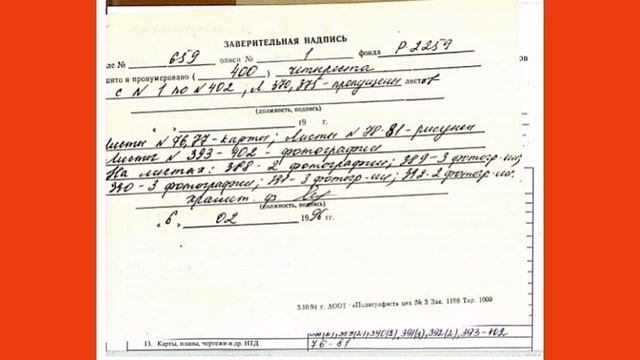 ЗАВЕРИТЕЛЬНАЯ НАДПИСЬ
ле № 659 описи № 1 фонда Р. 2259
шито и пронумеровано ( 400 ) четыреста
с N 1 по N 402; Л. 370, 375 - пропущены листов
(должность, подпись)
" " 19 г.
Листы N 76, 77 - карты; Листы N 78-81 - рисунки
Листы N 393 - 402 - фотографии
На листах: 388 - 2 фотографии; 389 - 3 фотогр-ии;
390 - 3 фотографии; 391 - 3 фотогр-ии; 392 - 2 фотогр-ии.
хранит. ф
(должность, подпись)
" 6 " 02 1996 гг.
3.10.94 г. АООТ «Полиграфист» цех № 3 Зак. 1198 Тир. 1000
390(3), 391(3), 392(2), 393-402
13. Карты, планы, чертежи и др. НТД 76 - 81